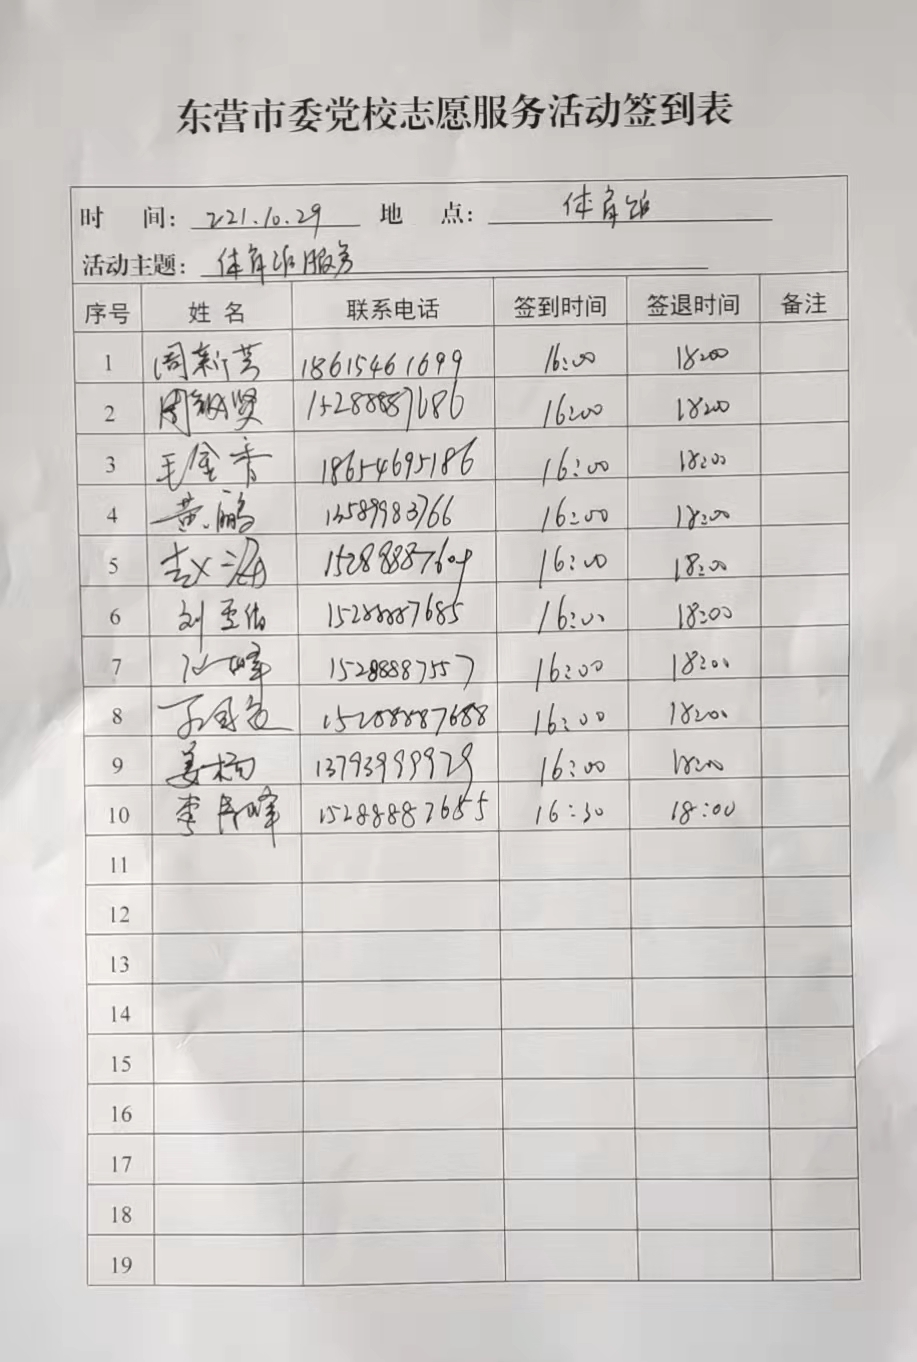 东营市委党校志愿服务活动签到表
时 间: 2021.10.29 地 点: 体育馆
活动主题: 体育馆服务
序号 姓名 联系电话 签到时间 签退时间 备注
1 周新芳 18615461699 16:00 18:00
2 周敬贤 15288887686 16:00 18:00
3 毛金香 18654695186 16:00 18:00
4 黄鹏 13589983766 16:00 18:00
5 15288887609 16:00 18:00
6 刘 15288887685 16:00 18:00
7 峰 15288887557 16:00 18:00
8 15288887688 16:00 18:00
9 姜杨 13793999929 16:00 18:00
10 李 峰 15288887655 16:30 18:00
11
12
13
14
15
16
17
18
19